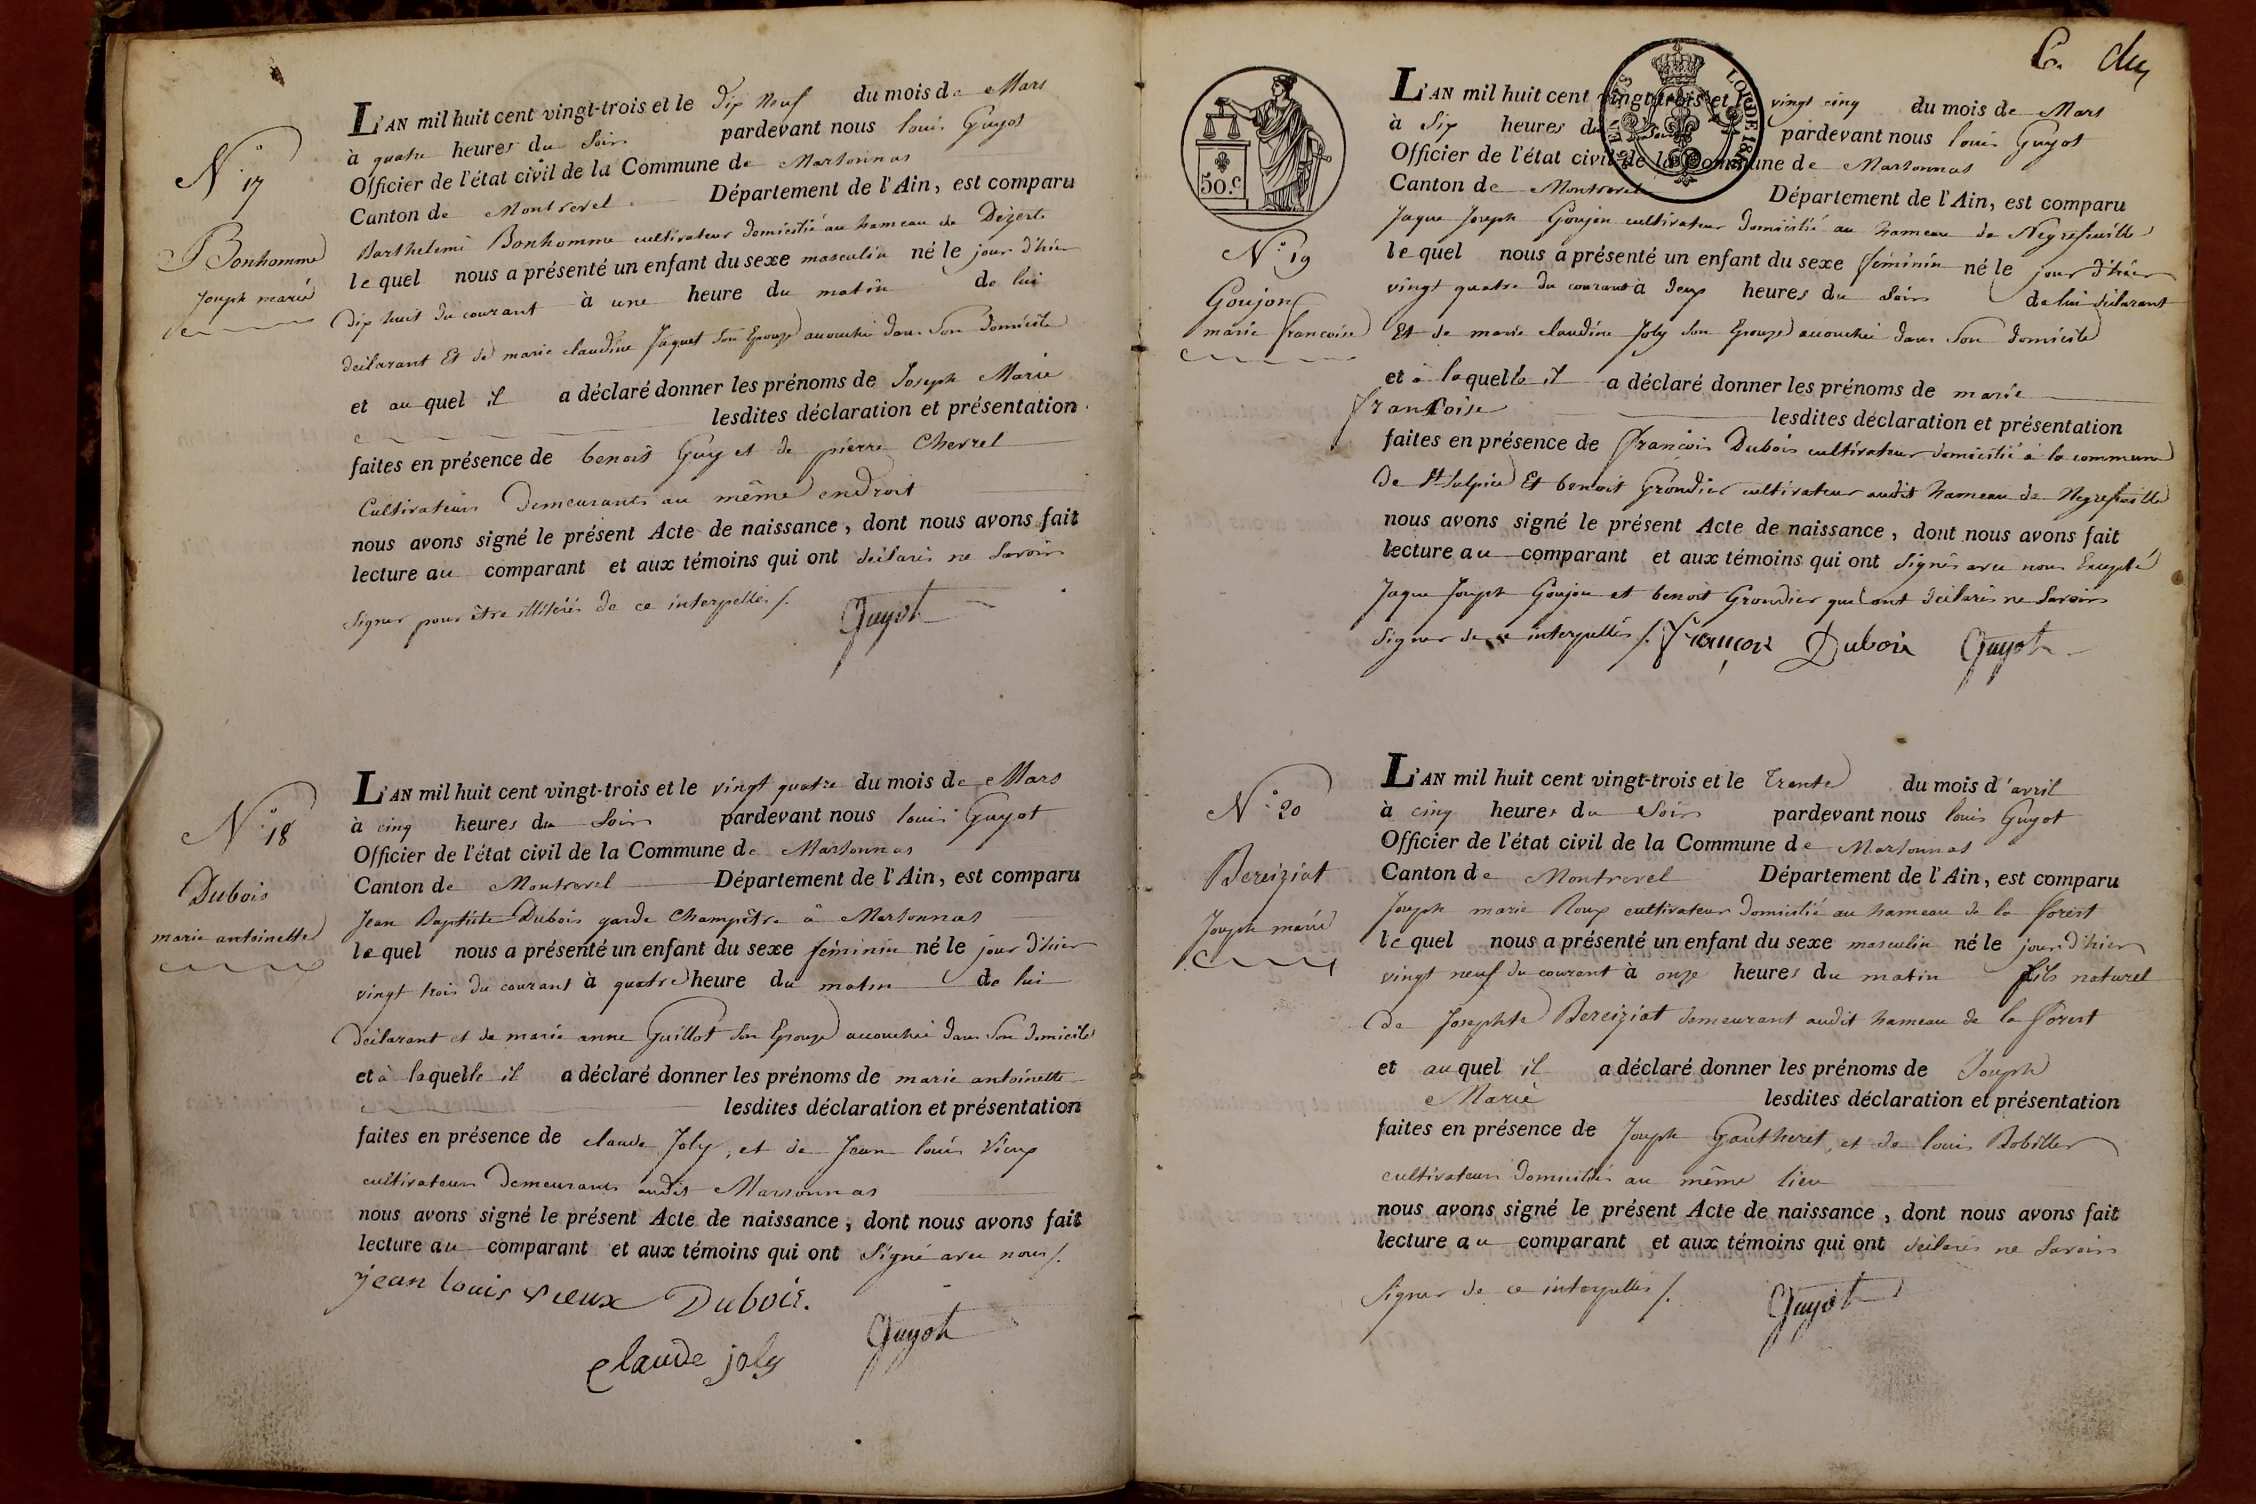 N.° 17
Bonhomme
Joseph marie
L'AN mil huit cent vingt-trois et le dix neuf du mois de Mars
à quatre heures du Soir pardevant nous louis Guyot
Officier de l'état civil de la Commune de Marsonnas
Canton de Montrevel Département de l'Ain, est comparu
Barthelemi Bonhomme cultivateur domicilié au hameau de Dézert
le quel nous a présenté un enfant du sexe masculin né le jour d'hier
dix huit du courant à une heure du matin de lui
déclarant Et de marie claudine Jaquet son Epouse accouchée dans Son domicile
et au quel il a déclaré donner les prénoms de Joseph Marie
lesdites déclaration et présentation
faites en présence de benoit Guy et de pierre Chevrel
Cultivateurs Demeurants au même endroit
nous avons signé le présent Acte de naissance, dont nous avons fait
lecture au comparant et aux témoins qui ont déclarés ne Savoir
Signer pour être illitérés de ce interpellés /. Guyot
N.° 18
Dubois
marie antoinette
L'AN mil huit cent vingt-trois et le vingt quatre du mois de Mars
à cinq heures du Soir pardevant nous louis Guyot
Officier de l'état civil de la Commune de Marsonnas
Canton de Montrevel Département de l'Ain, est comparu
Jean Baptiste Dubois garde Champêtre à Marsonnas
le quel nous a présenté un enfant du sexe féminin né le jour d'hier
vingt trois du courant à quatre heure du matin de lui
déclarant et de marie anne Guillot Son Epouse accouchée dans Son domicile
et à laquelle il a déclaré donner les prénoms de marie antoinette
lesdites déclaration et présentation
faites en présence de claude Joly, et de Jean louis Vieux
cultivateurs Demeurants audit Marsonnas
nous avons signé le présent Acte de naissance, dont nous avons fait
lecture au comparant et aux témoins qui ont Signé avec nous /.
jean louis vieux Dubois.
claude joly Guyot
50.c
N.° 19
Goujon
marie francoise
L'AN mil huit cent vingt-trois et le vingt cinq du mois de Mars
à Six heures du Soir pardevant nous louis Guyot
Officier de l'état civil de la Commune de Marsonnas
Canton de Montrevel Département de l'Ain, est comparu
Jaque Joseph Goujon cultivateur domicilié au hameau de Negrefeuille
le quel nous a présenté un enfant du sexe féminin né le jour d'hier
vingt quatre du courant à deux heures du Soir de lui déclarant
Et de marie claudine Joly Son Epouse accouchée dans Son domicile
et à laquelle il a déclaré donner les prénoms de marie
francoise lesdites déclaration et présentation
faites en présence de François Dubois cultivateur domicilié à la commune
De St Sulpice Et benoit Grondier cultivateur audit hameau de Negrefeuille
nous avons signé le présent Acte de naissance, dont nous avons fait
lecture au comparant et aux témoins qui ont Signés avec nous Excepté
Jaque Joseph Goujon et benoit Grondier qui ont déclarés ne Savoir
Signer de ce interpellés /. François Dubois Guyot
N.° 20
Bereiziat
Joseph marie
L'AN mil huit cent vingt-trois et le trente du mois d'avril
à cinq heures du Soir pardevant nous louis Guyot
Officier de l'état civil de la Commune de Marsonnas
Canton de Montrevel Département de l'Ain, est comparu
Joseph marie Roux cultivateur domicilié au hameau de la forest
le quel nous a présenté un enfant du sexe masculin né le jour d'hier
vingt neuf du courant à onze heures du matin fils naturel
de Josephte Bereiziat demeurant audit hameau de la forest
et au quel il a déclaré donner les prénoms de Joseph
Marie lesdites déclaration et présentation
faites en présence de Joseph Gautheret, et de louis Bobiller
cultivateurs domiciliés au même lieu
nous avons signé le présent Acte de naissance, dont nous avons fait
lecture au comparant et aux témoins qui ont déclarés ne Savoir
Signer de ce interpellés /. Guyot